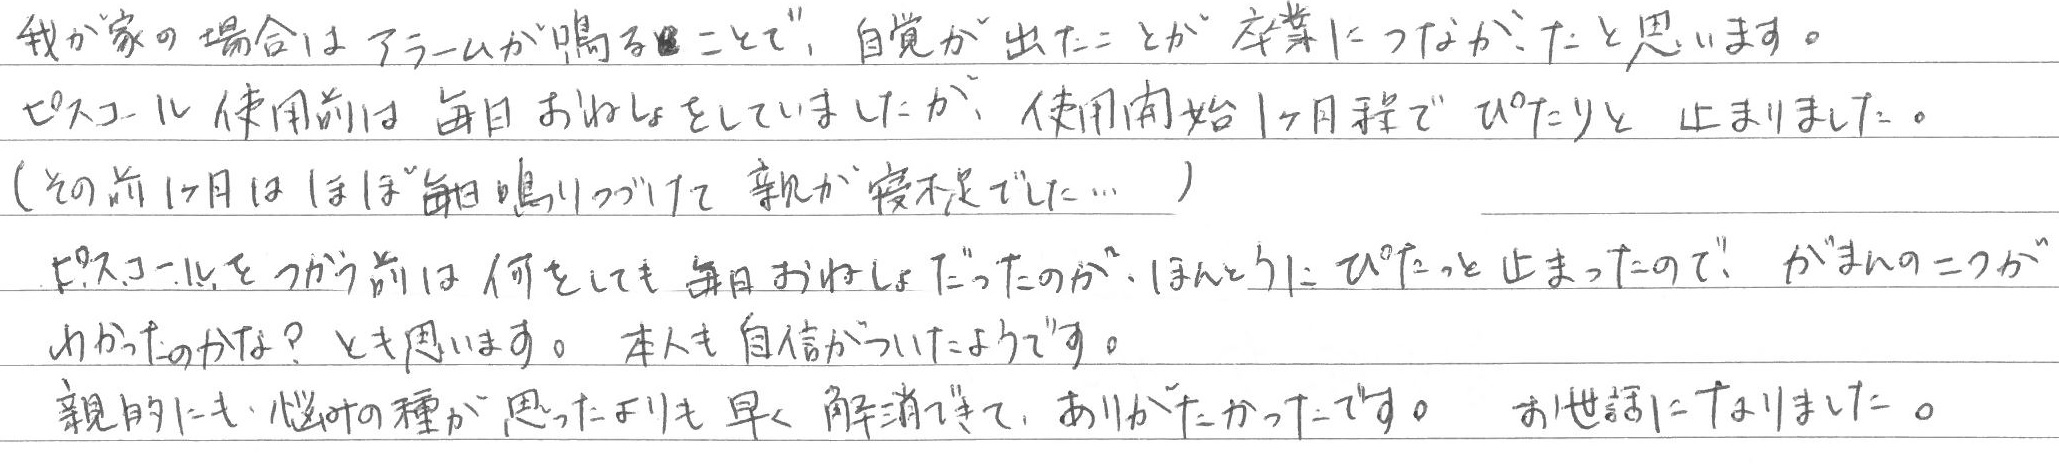 我が家の場合はアラームが鳴ることで、自覚が出たことが卒業につながったと思います。
ピスコール使用前は毎日おねしょをしていましたが、使用開始1ヶ月程でぴたりと止まりました。
(その前1ヶ月はほぼ毎日鳴りつづけて親が寝不足でした…)
ピスコールをつかう前は何をしても毎日おねしょだったのが、ほんとうにぴたっと止まったので、がまんのコツが
わかったのかな?とも思います。本人も自信がついたようです。
親的にも、悩みの種が思ったよりも早く解消できて、ありがたかったです。お世話になりました。